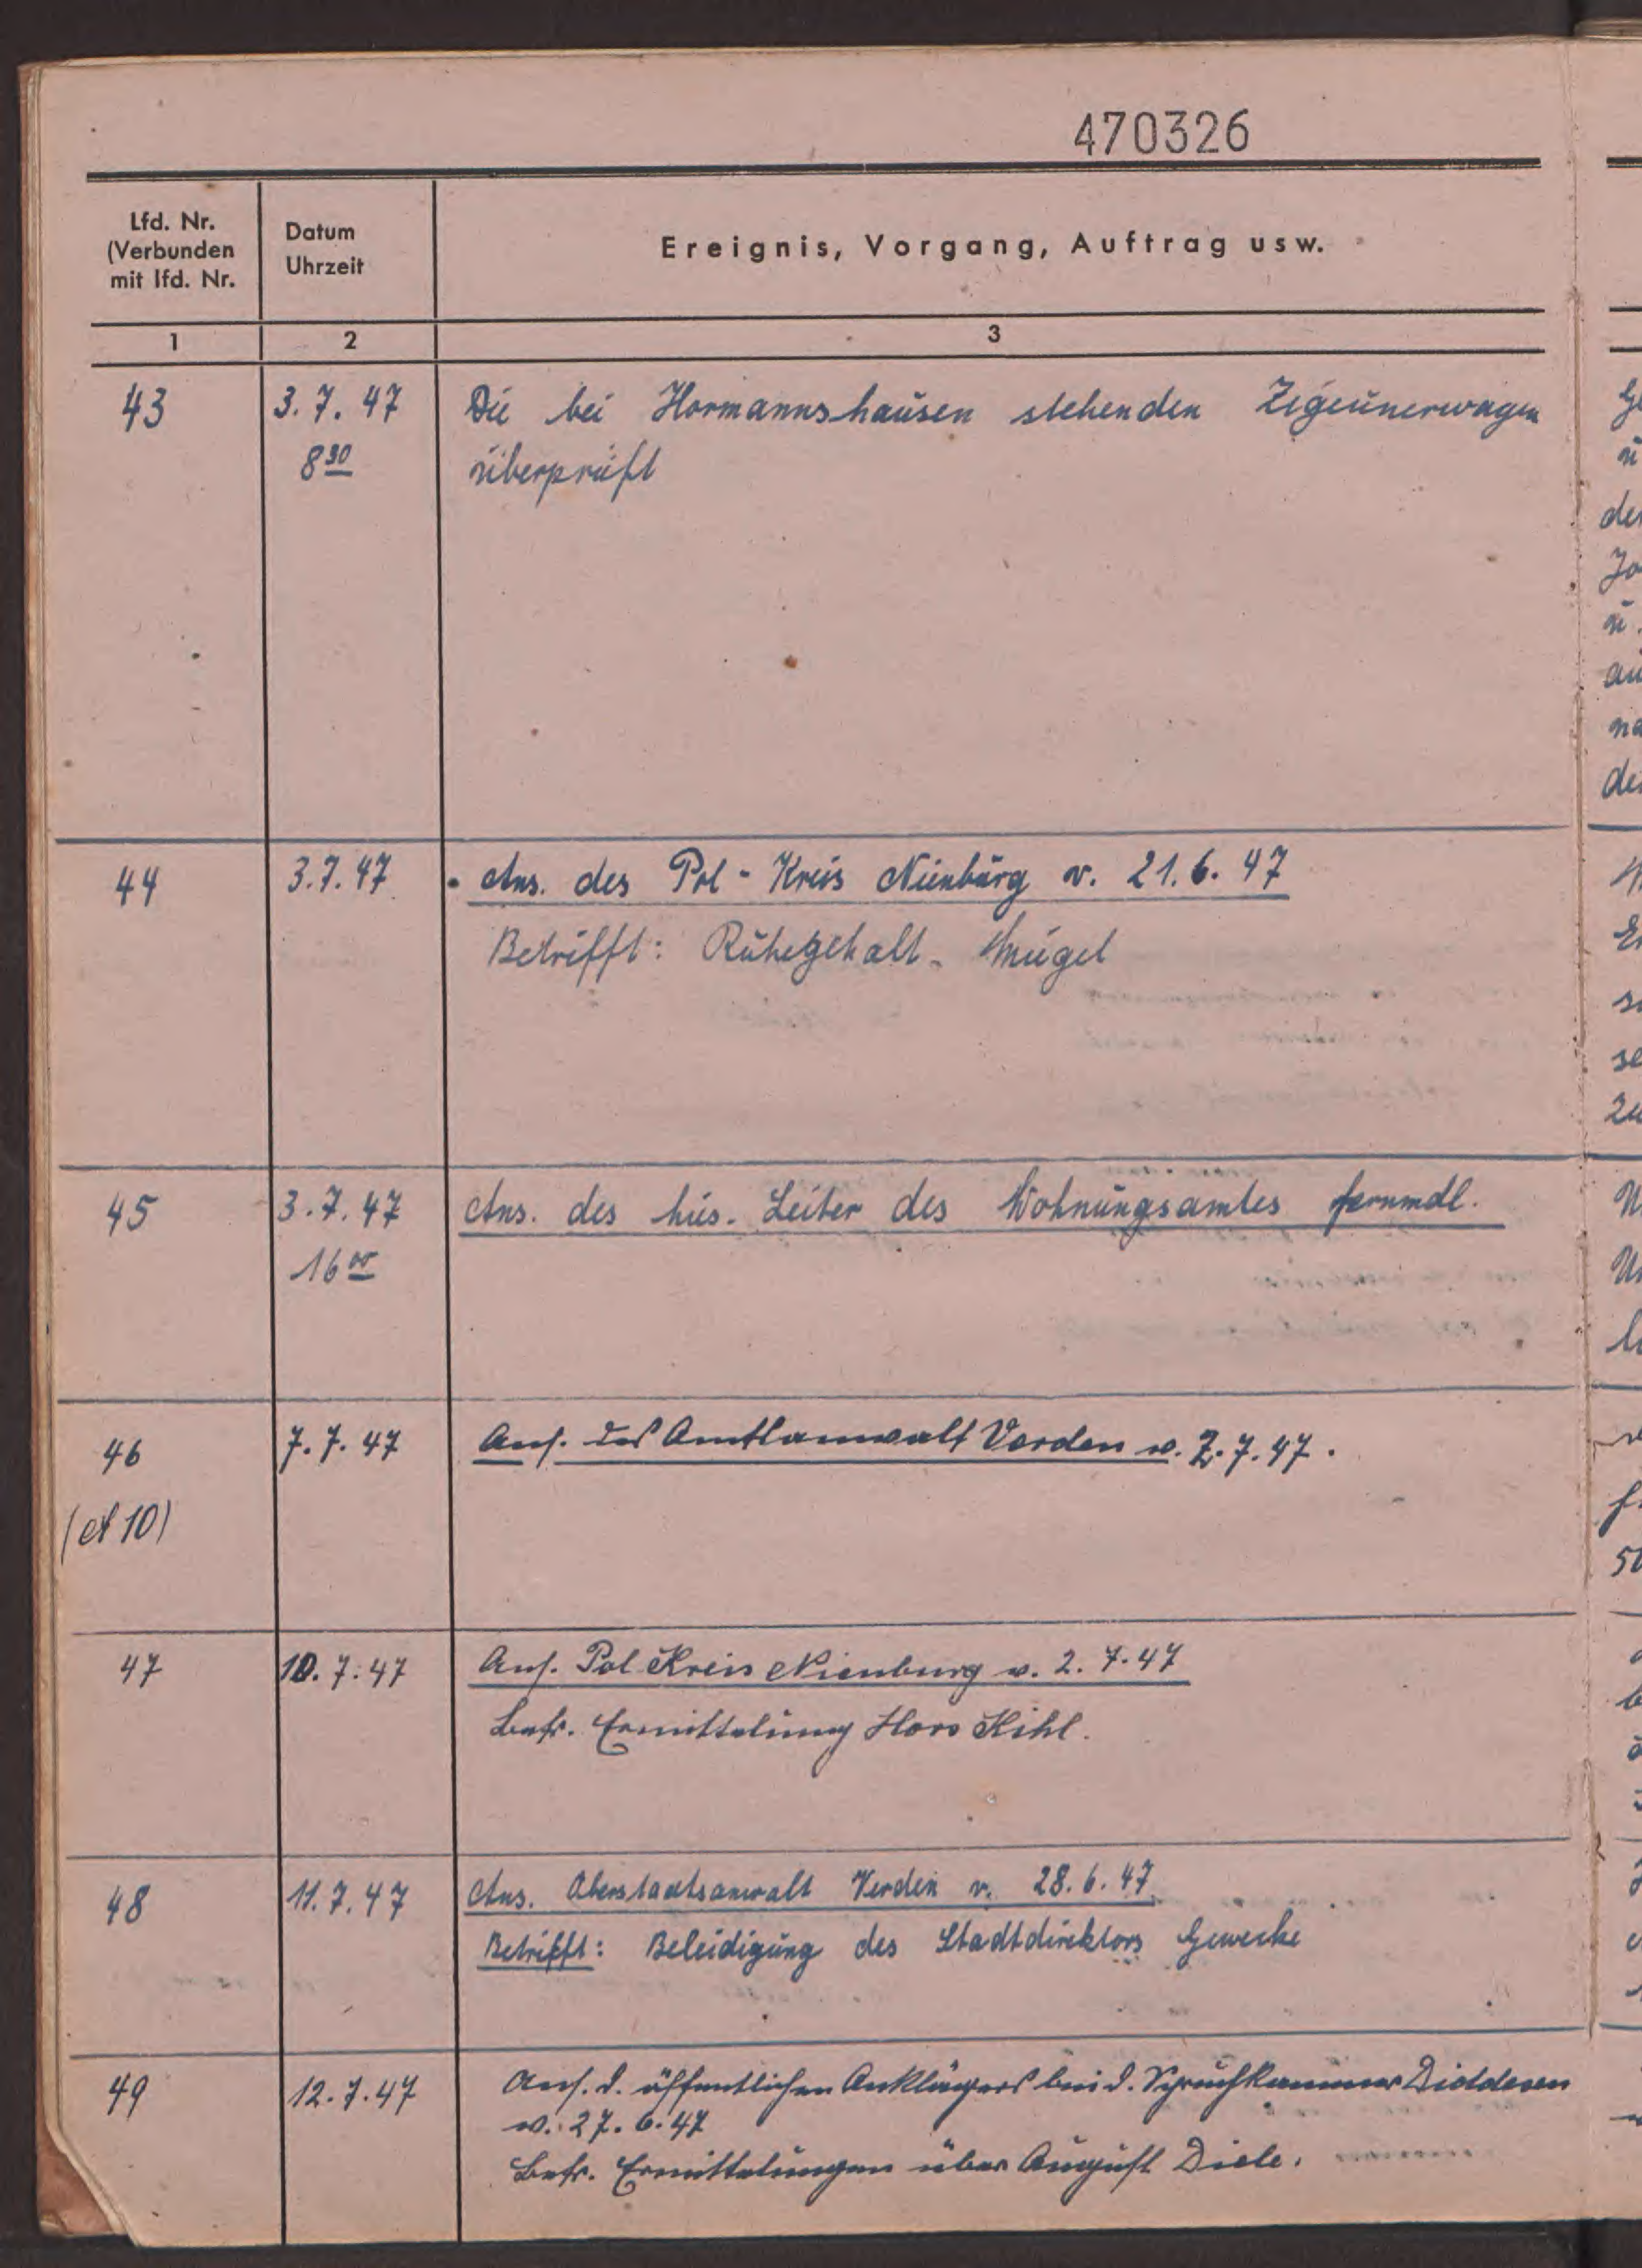 470326
Lfd. Nr.
(Verbunden
mit lfd. Nr.
Datum
Uhrzeit
Ereignis, Vorgang, Auftrag usw.
1 2 3
43 3.7.47 Die bei Hormannshausen stehenden Zigeunerwagen
8 30 überprüft
44 3.7.47 Ans. des Pol-Kreis Nienburg v. 21.6.47
Betrifft: Ruhegehalt -
45 3.7.47 Ans. des hies. Leiter des Wohnungsamtes fernmdl.
16 00
46 7.7.47 Ans. des Amtsanwalt Verden v. 2.7.47.
(A 10)
47 10.7.47 Ans. Pol Kreis Nienburg v. 2.7.47
Betr. Ermittelung Kihl.
48 11.7.47 Ans. Oberstaatsanwalt Verden v. 28.6.47
Betrifft: Beleidigung des Stadtdirektors Gewecke
49 12.7.47 Ans. d. öffentlichen Anklägers bei d. Spruchkammer
v. 27.6.47
Betr. Ermittelungen über August Diele.